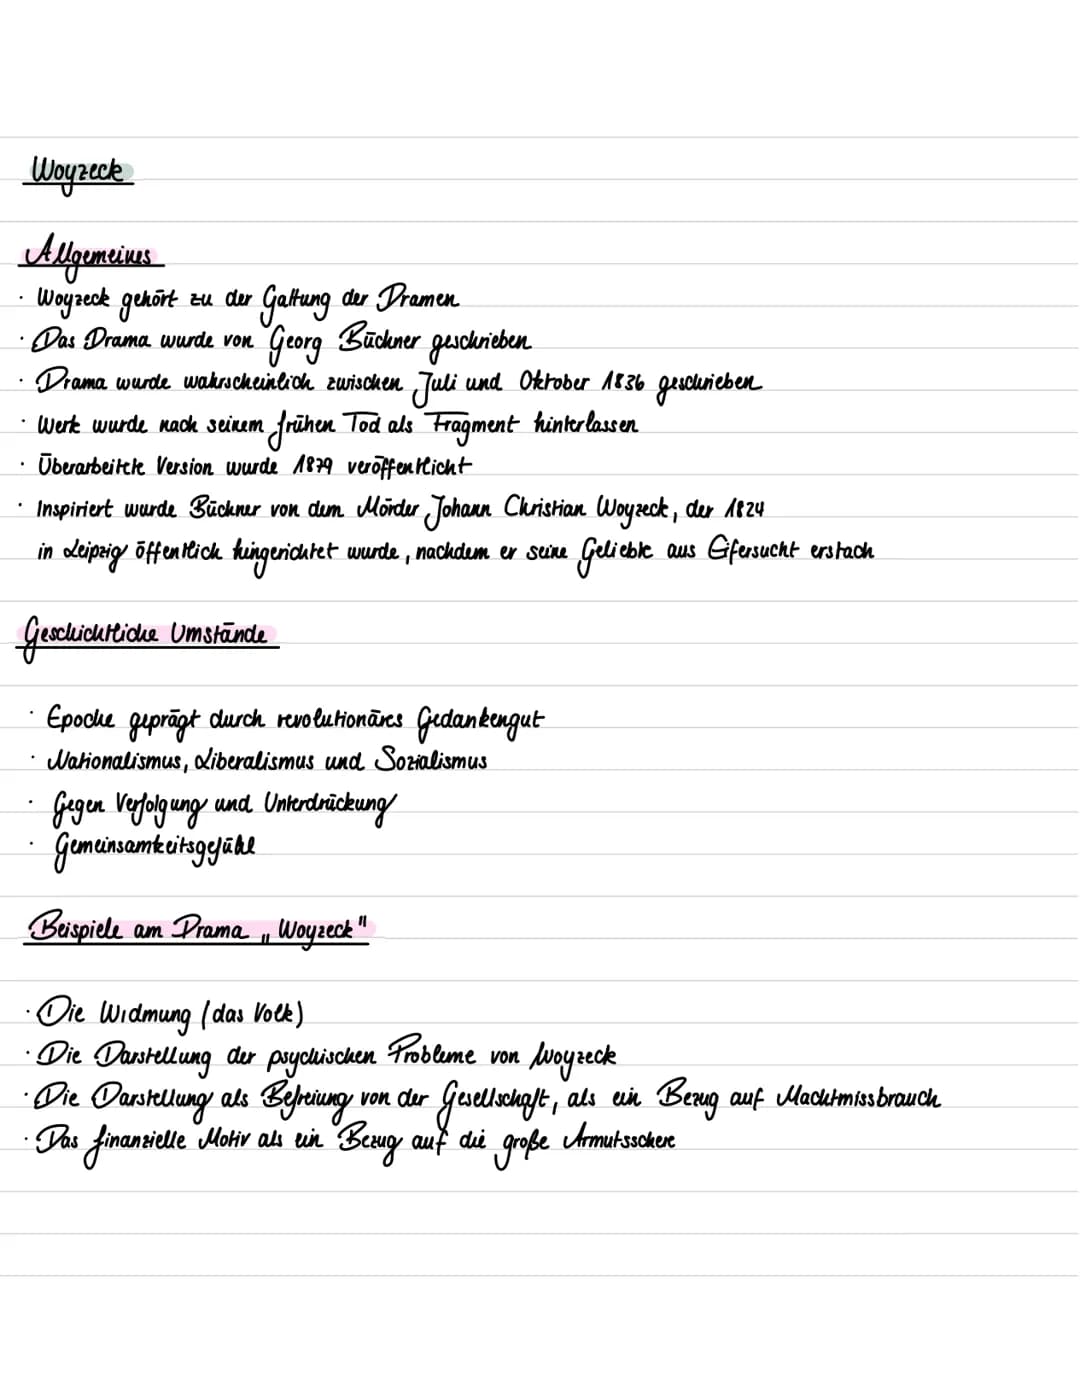 Woyzeck
Allgemeines
· Woyzeck gehört zu der Gattung der Dramen
· Das Drama wurde von Georg Büchner geschrieben
· Drama wurde wahrscheinlich zwischen Juli und Oktober 1836 geschrieben
· Werk wurde nach seinem frühen Tod als Fragment hinterlassen
· Überarbeitete Version wurde 1879 veröffentlicht
· Inspiriert wurde Büchner von dem Mörder Johann Christian Woyzeck, der 1824
in Leipzig öffentlich hingerichtet wurde, nachdem er seine Geliebte aus Eifersucht erstach
Geschichtliche Umstände
· Epoche geprägt durch revolutionäres Gedankengut
· Nationalismus, Liberalismus und Sozialismus
· Gegen Verfolgung und Unterdrückung
· Gemeinsamkeitsgefühl
Beispiele am Drama „Woyzeck"
· Die Widmung (das Volk)
· Die Darstellung der psychischen Probleme von Woyzeck
· Die Darstellung als Befreiung von der Gesellschaft, als ein Bezug auf Machtmissbrauch
· Das finanzielle Motiv als ein Bezug auf die große Armutsschere